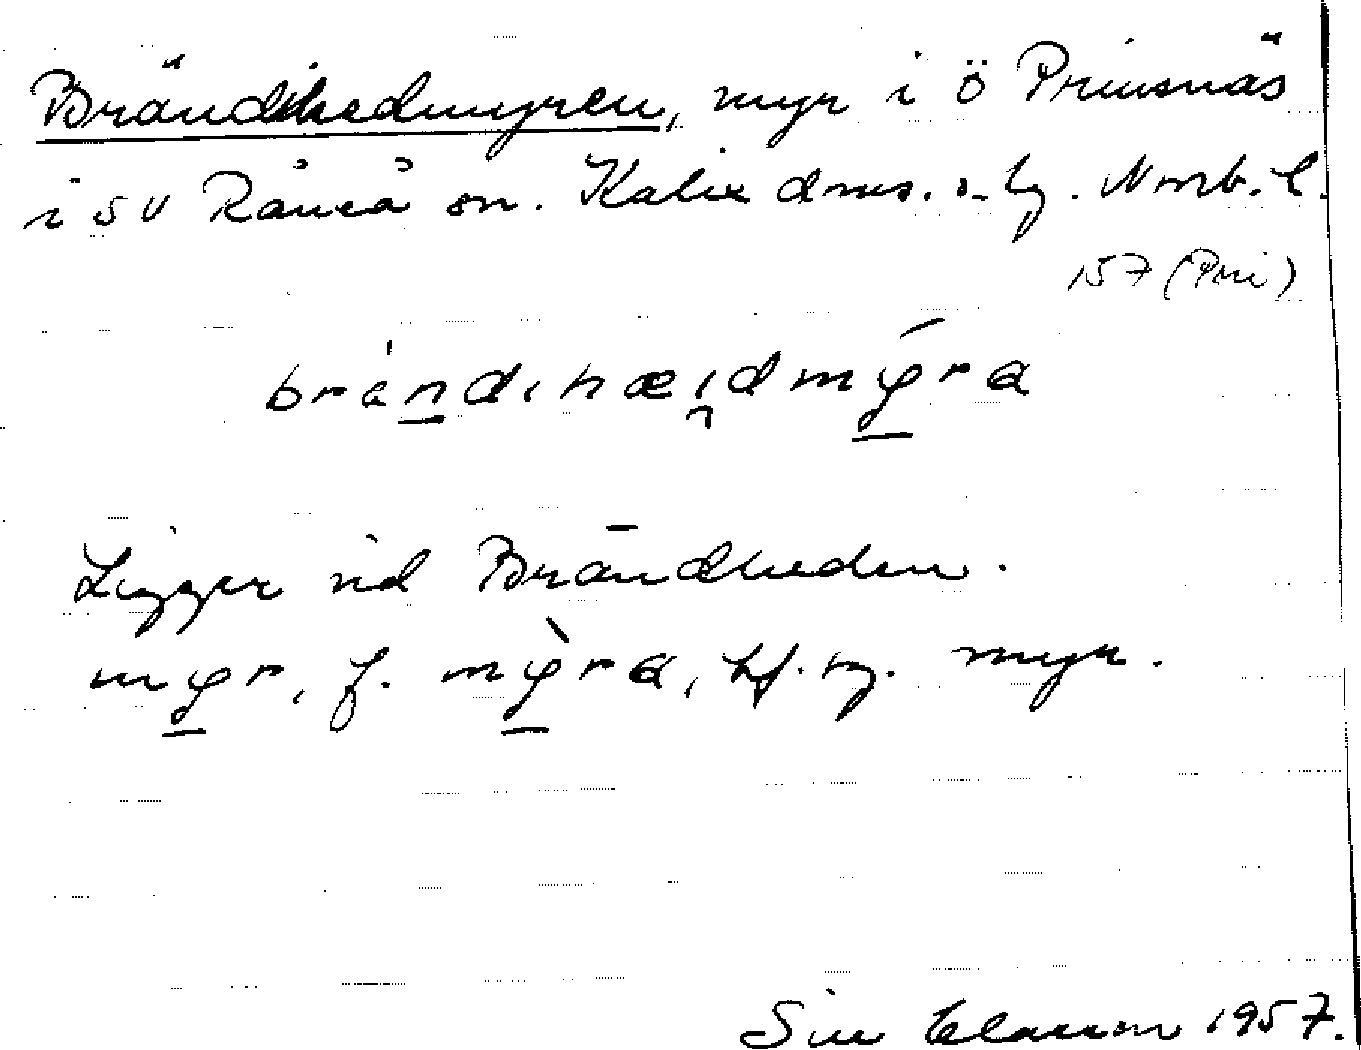 Brändihedmyren, myr i ö Prinsnäs
i sv Råneå sn. Kalix dms. o. lg. Norrb. l.
157 (Pri)
brándıhæi̯dmy̱ra
Ligger vid Brändheden.
my̱r, f. mỳ̱ra, bf. sg. myr.
Siw 1957.